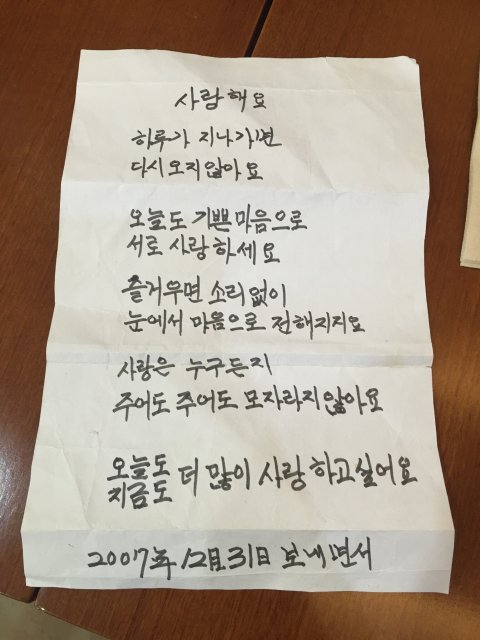 사랑해요
하루가 지나가면
다시오지않아요
오늘도 기쁜마음으로
서로 사랑하세요
즐거우면 소리없이
눈에서 마음으로 전해지지요
사랑은 누구든지
주어도 주어도 모자라지않아요
오늘도
지금도 더 많이 사랑하고싶어요
2007年 12月31日 보내면서